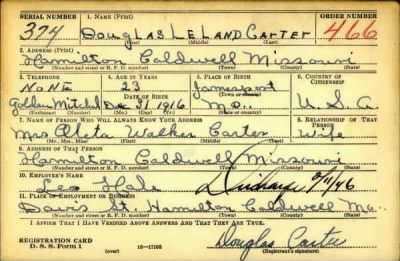 SERIAL NUMBER 1. NAME (Print) ORDER NUMBER
374 Douglas Leland Carter 466
(First) (Middle) (Last)
2. ADDRESS (Print)
Hamilton Caldwell Missouri
(Number and street or R. F. D. number) (Town) (County) (State)
3. TELEPHONE 4. AGE IN YEARS 5. PLACE OF BIRTH 6. COUNTRY OF CITIZENSHIP
NoNe 23 Jamesport
DATE OF BIRTH (Town or county)
Golden Mitchel Dec 31 1916 Mo. U. S. A.
(Exchange) (Number) (Mo.) (Day) (Yr.) (State or country)
7. NAME OF PERSON WHO WILL ALWAYS KNOW YOUR ADDRESS 8. RELATIONSHIP OF THAT PERSON
Mrs Aleta Walker Carter Wife
(Mr., Mrs., Miss) (First) (Middle) (Last)
9. ADDRESS OF THAT PERSON
Hamilton Caldwell Missouri
(Number and street or R. F. D. number) (Town) (County) (State)
10. EMPLOYER'S NAME
Leo Hale
11. PLACE OF EMPLOYMENT OR BUSINESS
Davis St. Hamilton Caldwell Mo.
(Number and street or R. F. D. number) (Town) (County) (State)
I AFFIRM THAT I HAVE VERIFIED ABOVE ANSWERS AND THAT THEY ARE TRUE.
REGISTRATION CARD
D. S. S. Form 1 (over) 16-17105 Douglas Carter
(Registrant's signature)